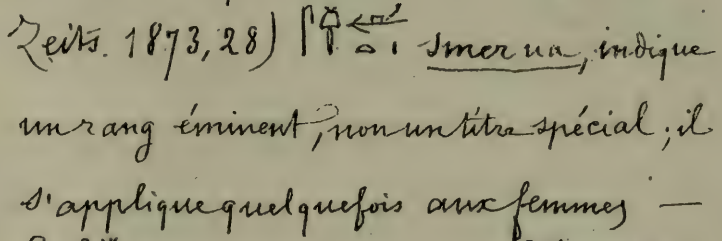 Zeits. 1873, 28) smer ua, indique
un rang éminent, non un titre spécial ; il
s'applique quelquefois aux femmes —